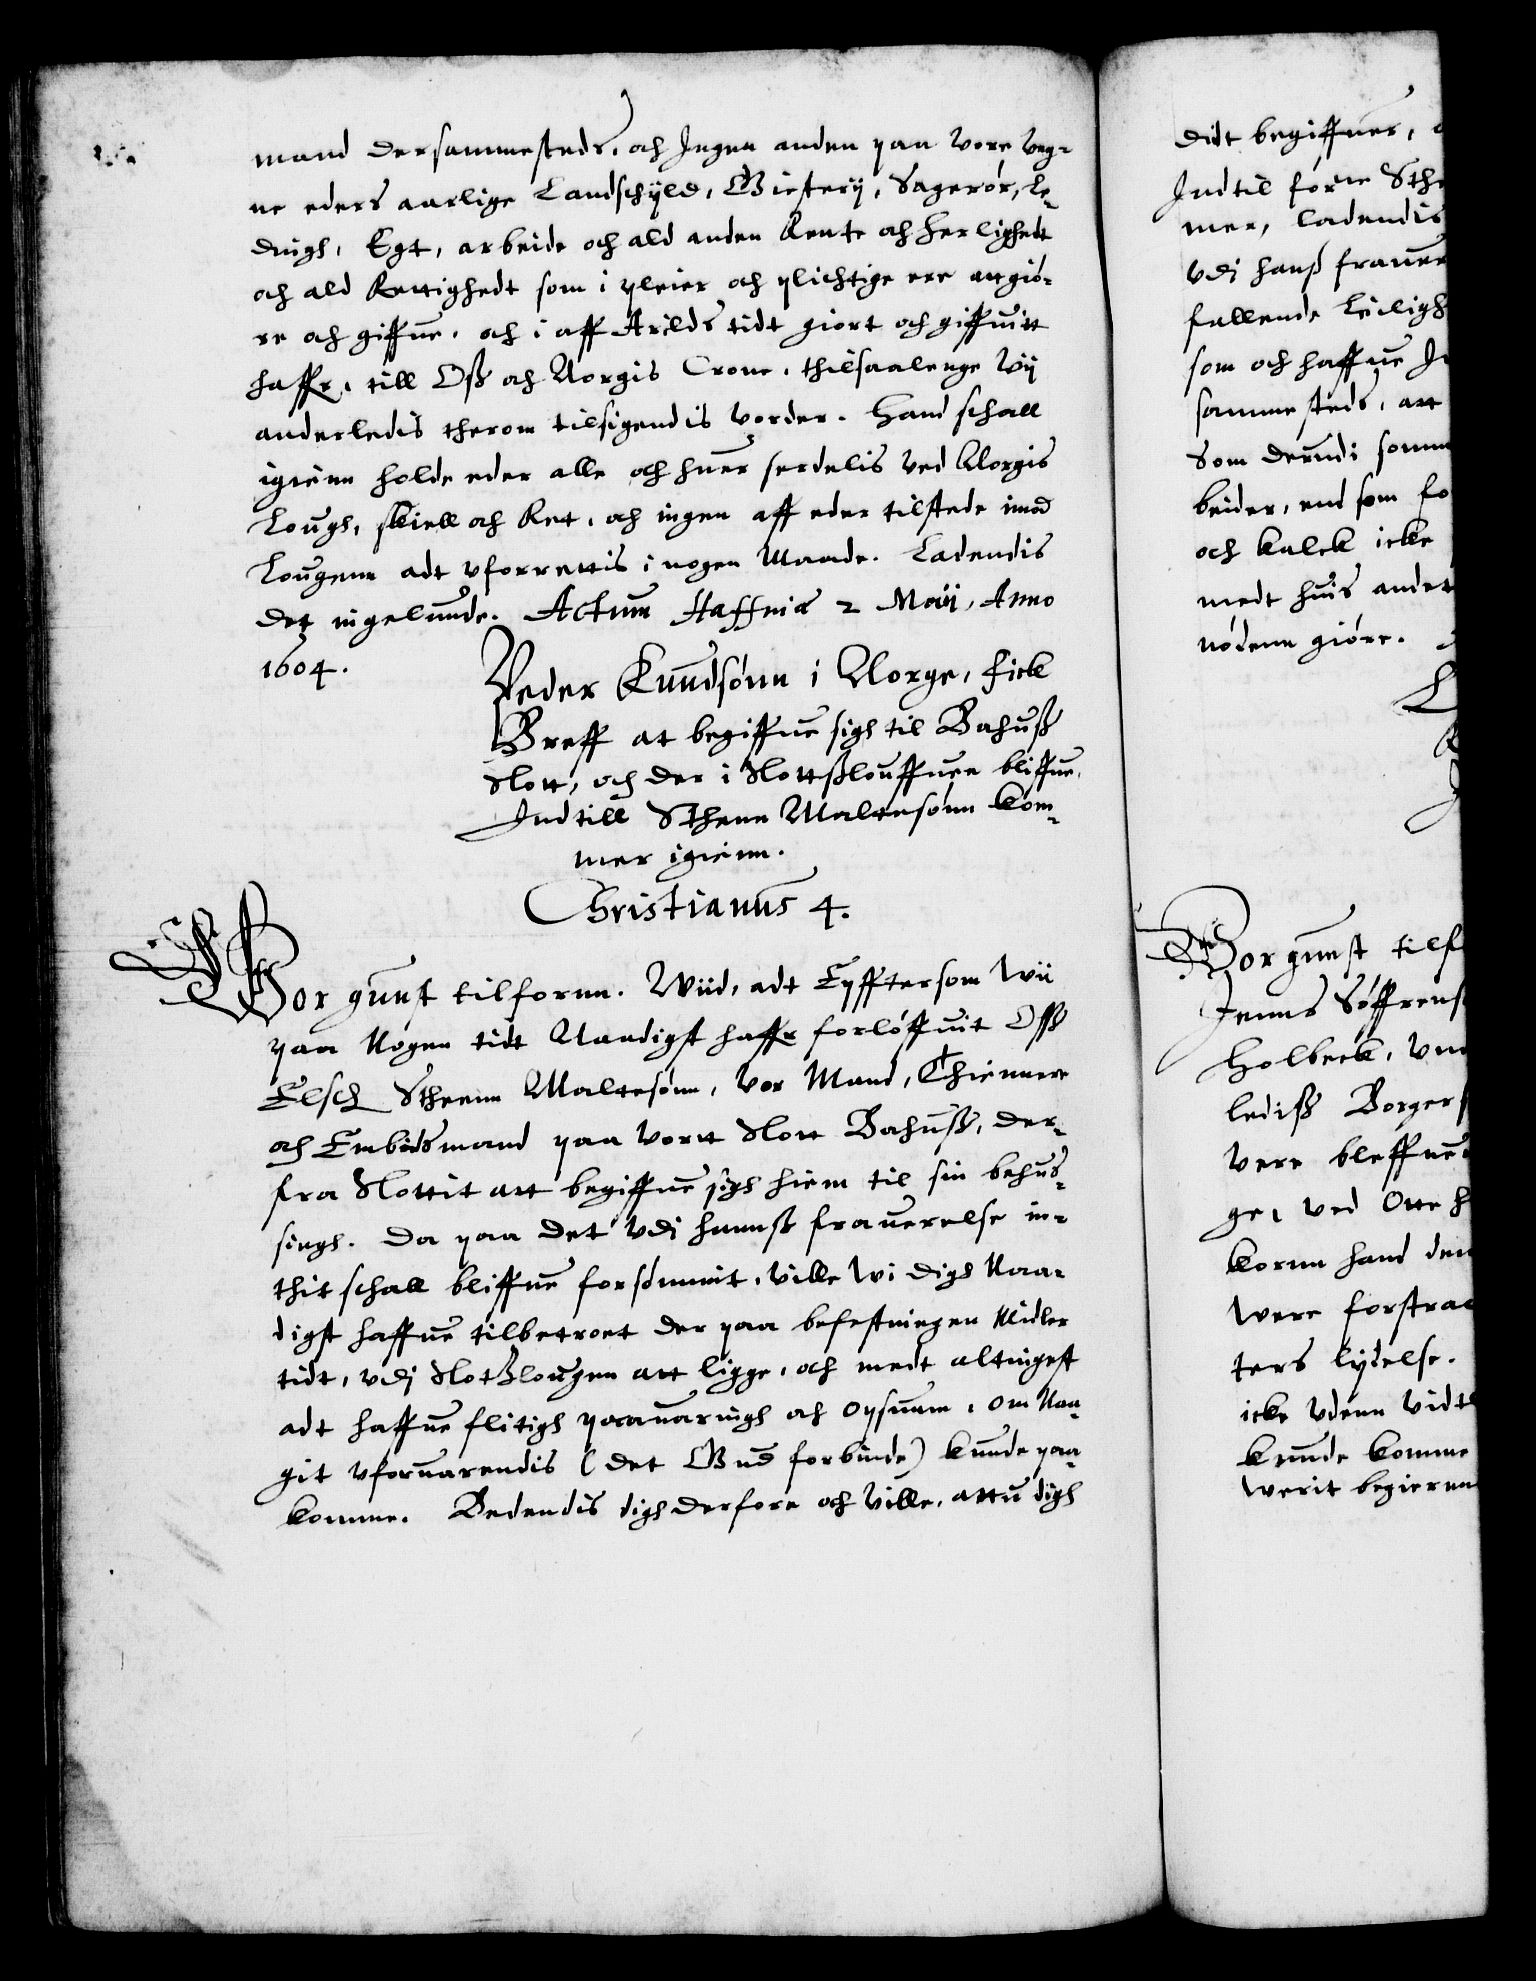 mand dersammesteds, och Ingen anden paa vore veg-
ne eders aarlige Landschyld, Giesterij, Sagerør, Le-
dingh, Egt, arbeide och ald anden Rente och herlighedt
och ald Rettighedt som i pleier och plichtige ere att giø-
re och giffue, och i aff Arilds tidt giort och giffuitt
haffr, till Oß och Norgis Crone, thilsaalenge Vij
anderledis therom tilsigendis vorder. Hand schall
igienn holde eder alle och huer serdelis ved Norgis
Lough, skiell och Ret, och ingen aff eder tilstede imod
Lougenn adt vforrettis i nogen Maade. Ladendis
det ingelunde. Actum Haffniæ 2 Maij, Anno
1604.
Peder Knudsønn i Norge, fick
Breff at begiffue sigh til Bahuß
Slott, och der i Slottßlouffuen bliffue,
Indtill Sthenn Maltesønn kom-
mer igienn.
Christianus 4.
Vor gunst tilfornn. Wiid, adt Epfftersom Wii
paa Nogen tidt Naadigst haffr forløffuit Oss
Elsch Stheenn Maltesønn, Vor Mand, Thiennere
och Embidsmand paa vortt Slott Bahuß, der-
fra Slottit att begiffue sigh hiem til sin behus-
singh. Da paa det Vdj hannß frauerelse in-
thit schall bliffue forsømmit, Ville Wi digh Naa-
digst haffue tilbetroet der paa befestningen Midler
tidt, vdj Slotßlougen att ligge, och medt altingest
adt haffue flitigh paauaringh och opsuun, om Naa-
git vforuarendis (det Gud forbiude) kunde paa-
komme. Bedendis digh derfore och Ville, attu digh
didt begiffuer,
Indtil forne Sthe
mer, ladendis
Vdj hanß frauer
fallende Leiligh
som och haffue In
samme steds, att
Som derudi somm
beider, end som fo
och kalck icke
medt huis andet
nødenn giøre.
Vor gunst tilf
Jenns Søffrens
Holbeck, vnd
lediß Borger
vere bleffue
ge, ved Otte H
kornn hand den
Were forstrac
ters lydelse.
icke vdenn vidt
kunde komme
Werit begieren